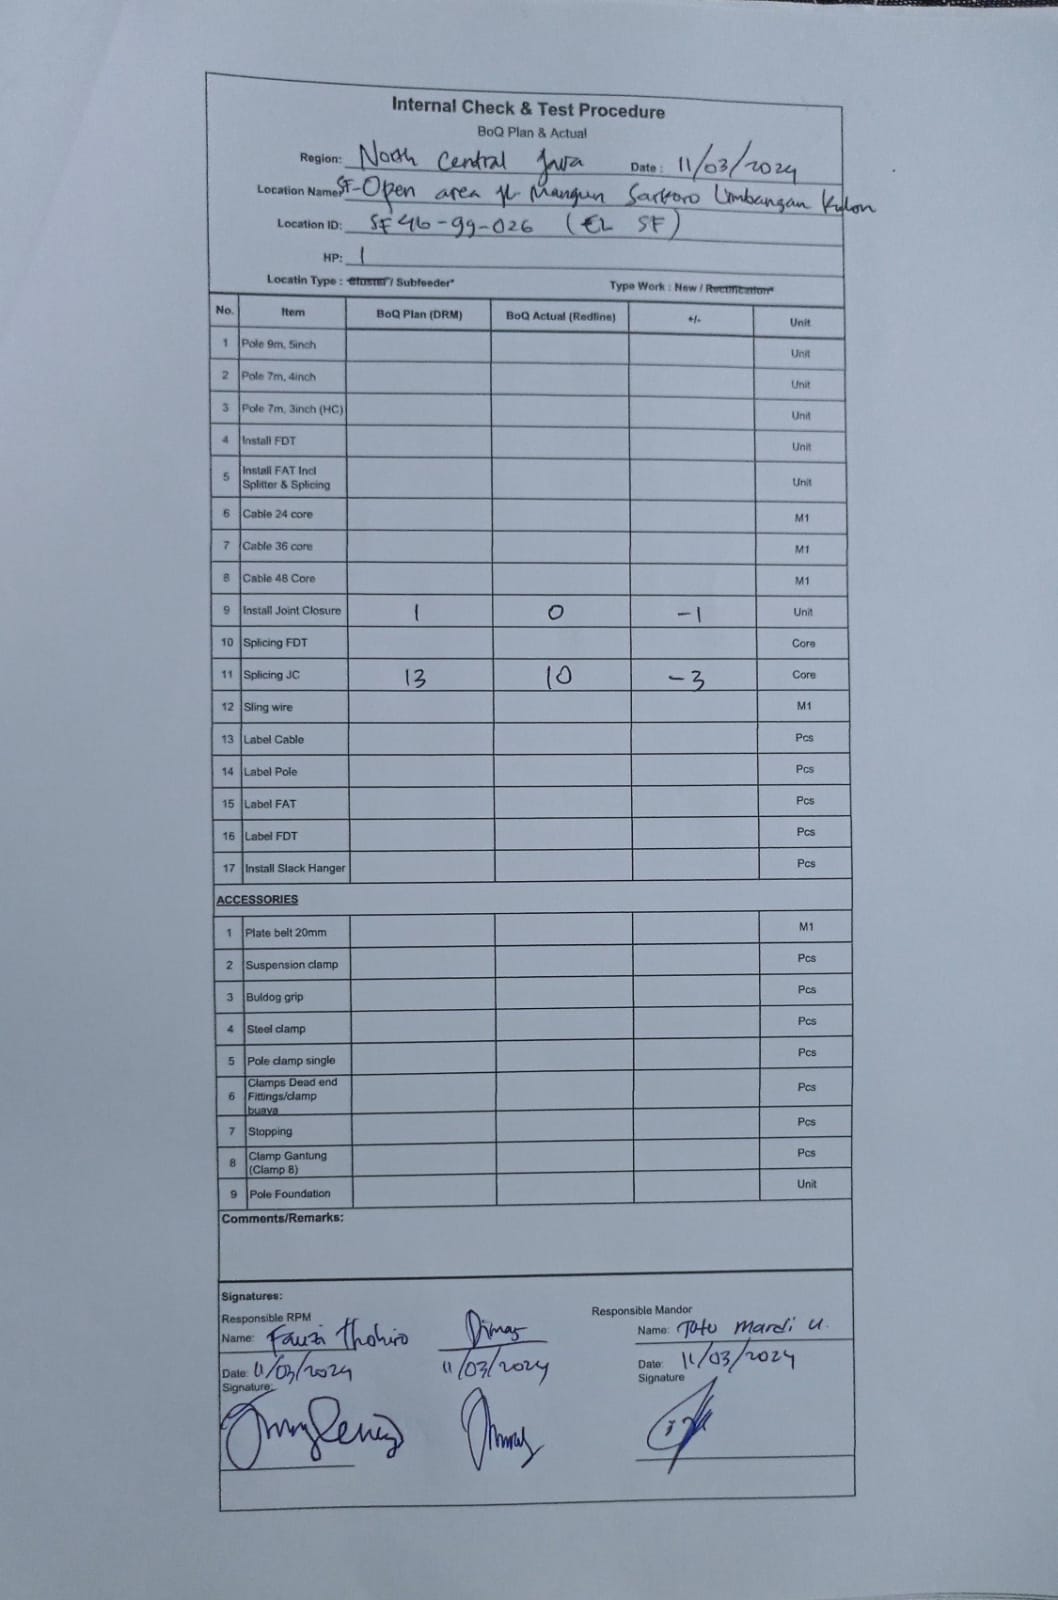 Internal Check & Test Procedure
BoQ Plan & Actual
Region: North Central Java Date: 11/03/2024
Location Name: SF-Open area Jl Mangun Sarkoro Limbangan Kulon
Location ID: SF46-99-026 (EL SF)
HP: 1
Locatin Type : Cluster / Subfeeder* Type Work : New / Rectification*
No. Item BoQ Plan (DRM) BoQ Actual (Redline) +/- Unit
1 Pole 9m, 5inch Unit
2 Pole 7m, 4inch Unit
3 Pole 7m, 3inch (HC) Unit
4 Install FDT Unit
5 Install FAT Incl Splitter & Splicing Unit
6 Cable 24 core M1
7 Cable 36 core M1
8 Cable 48 Core M1
9 Install Joint Closure 1 0 -1 Unit
10 Splicing FDT Core
11 Splicing JC 13 10 -3 Core
12 Sling wire M1
13 Label Cable Pcs
14 Label Pole Pcs
15 Label FAT Pcs
16 Label FDT Pcs
17 Install Slack Hanger Pcs
ACCESSORIES
1 Plate belt 20mm M1
2 Suspension clamp Pcs
3 Buldog grip Pcs
4 Steel clamp Pcs
5 Pole clamp single Pcs
6 Clamps Dead end Fittings/clamp buaya Pcs
7 Stopping Pcs
8 Clamp Gantung (Clamp 8) Pcs
9 Pole Foundation Unit
Comments/Remarks:
Signatures:
Responsible RPM Responsible Mandor
Name: Fauzi Thohiro Dimas Name: Toto Mardi U.
Date: 11/03/2024 11/03/2024 Date: 11/03/2024
Signature: Signature